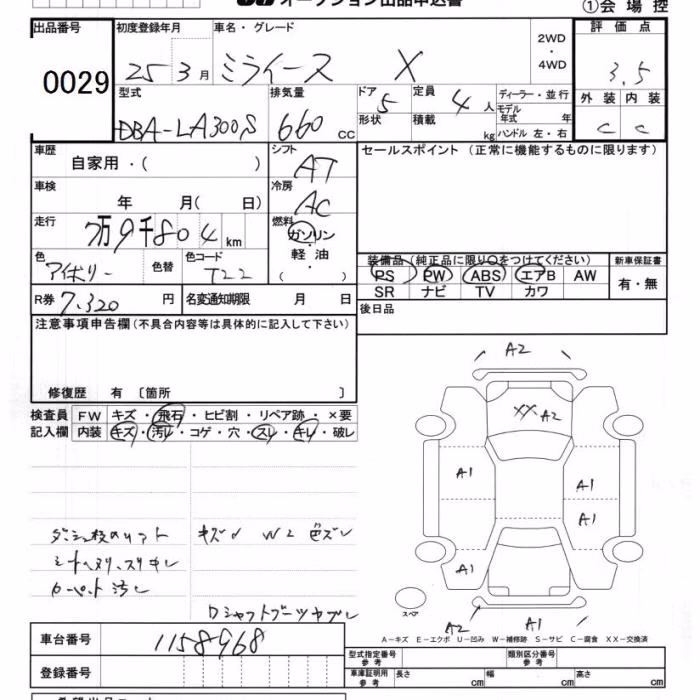 オークション出品申込書
①会場控
出品番号 0029
初度登録年月 25 3月
車名・グレード ミライース X
2WD・4WD
評価点 3.5
外装 内装
C C
型式 DBA-LA300S
排気量 660 cc
ドア 5
形状
定員 4人
積載 kg
ディーラー・並行
モデル年式 年
ハンドル 左・右
車歴 自家用・( )
シフト AT
セールスポイント(正常に機能するものに限ります)
車検 年 月( 日)
冷房 AC
走行 7万9千804km
燃料 ガソリン・軽油・( )
色 アイボリー 色替
色コード T22
装備品(純正品に限り○をつけてください)
新車保証書
PS PW ABS エアB AW
SR ナビ TV カワ
有・無
R券 7.320円
名変通知期限 月 日
後日品
注意事項申告欄(不具合内容等は具体的に記入して下さい)
修復歴 有〔箇所 〕
検査員記入欄
FW キズ・飛石・ヒビ割・リペア跡・×要
内装 キズ・汚レ・コゲ・穴・スレ・キレ・破レ
A2
XX A2
A1
A1
A1
A1
スペア
A2
A1
キズ W2 色ズレ
カーペット汚レ
ドシャフトブーツヤブレ
A-キズ E-エクボ U-凹み W-補修跡 S-サビ C-腐食 XX-交換済
車台番号 1158968
登録番号
型式指定番号 参考
類別区分番号 参考
車庫証明用参考 長さ cm 幅 cm 高さ cm